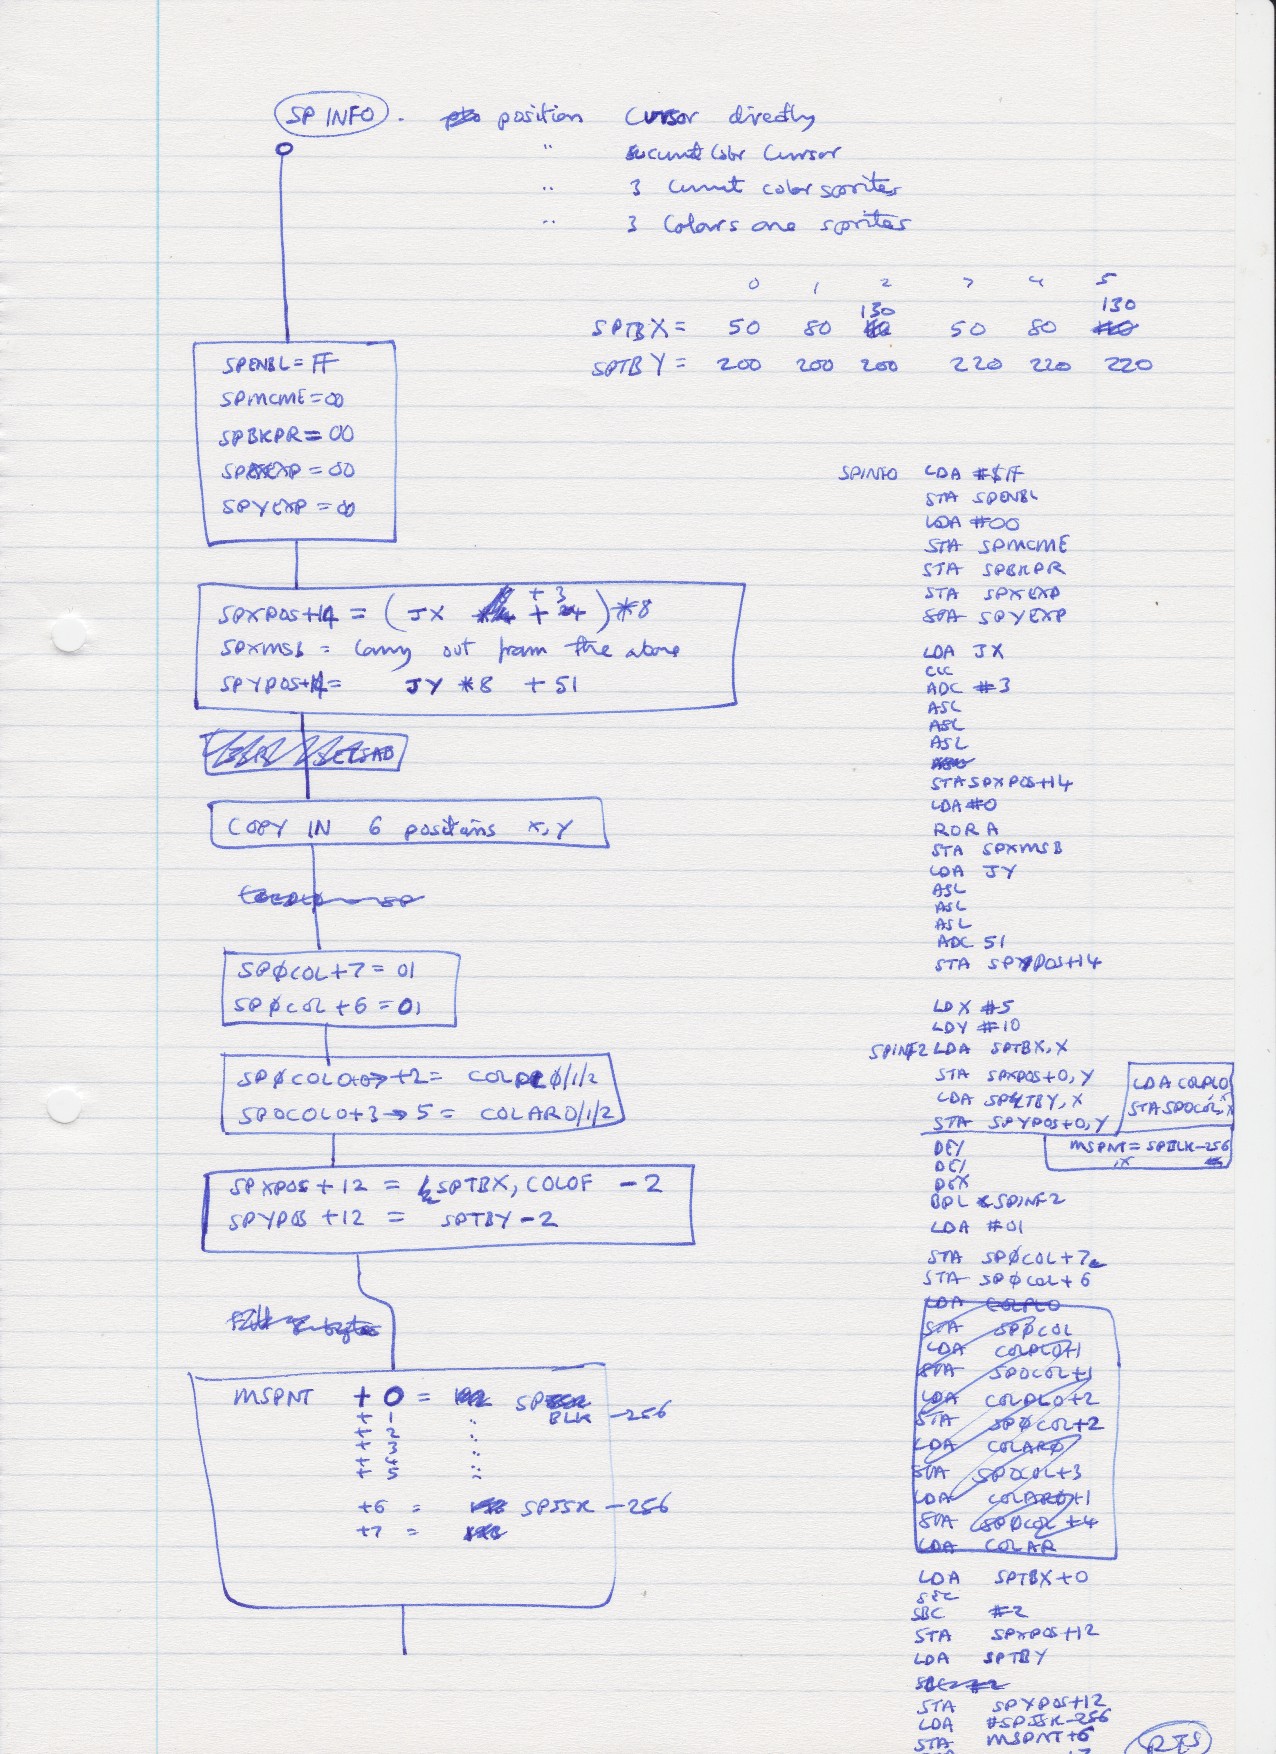 SPINFO . position Cursor directly
" Color Cursor
" 3 color sprites
" 3 Colours one sprites
0 1 2 3 4 5
130 130
SPTBX = 50 80 50 80
SPTBY = 200 200 200 220 220 220
SPENBL = FF
SPMCME = 00
SPBKPR = 00
SPXEXP = 00
SPYEXP = 00
SPXPOS+14 = (JX + 3) *8
SPXMSB = carry out from the above
SPYPOS+14 = JY *8 + 51
COPY IN 6 positions x, y
SPØCOL+7 = 01
SPØCOL+6 = 01
SPØCOL0+0→+2 = COLPLØ/1/2
SPOCOL0+3→5 = COLAR0/1/2
SPXPOS+12 = SPTBX, COLOF -2
SPYPOS +12 = SPTBY-2
MSPNT +0 = SP
BLK -256
+ 1 "
+ 2 "
+ 3 "
+ 4 "
+ 5 "
+6 = SPSSK -256
+7 =
SPINFO LDA #$FF
STA SPENBL
LDA #00
STA SPMCME
STA SPBKPR
STA SPXEXP
STA SPYEXP
LDA JX
CLC
ADC #3
ASL
ASL
ASL
STA SPXPOS+14
LDA #0
ROR A
STA SPXMSB
LDA JY
ASL
ASL
ASL
ADC 51
STA SPYPOS+14
LDX #5
LDY #10
SPINF2 LDA SPTBX,X
STA SPXPOS+0,Y
LDA SPTBY,X
STA SPYPOS+0,Y
LDA COLPLO
STA SPOCOL,X
MSPNT = SPBLK-256
,X
DEY
DEY
DEX
BPL SPINF2
LDA #01
STA SPØCOL+7
STA SPØCOL+6
LDA COLPLO
STA SPØCOL
LDA COLPLO+1
STA SPOCOL+1
LDA COLPLO+2
STA SPØCOL+2
LDA COLARØ
STA SPOCOL+3
LDA COLARØ+1
STA SPØCOL+4
LDA COLAR
LDA SPTBX+0
SEC
SBC #2
STA SPXPOS+12
LDA SPTBY
SBC #2
STA SPYPOS+12
LDA #SPSSK-256
STA MSPNT+6
RTS